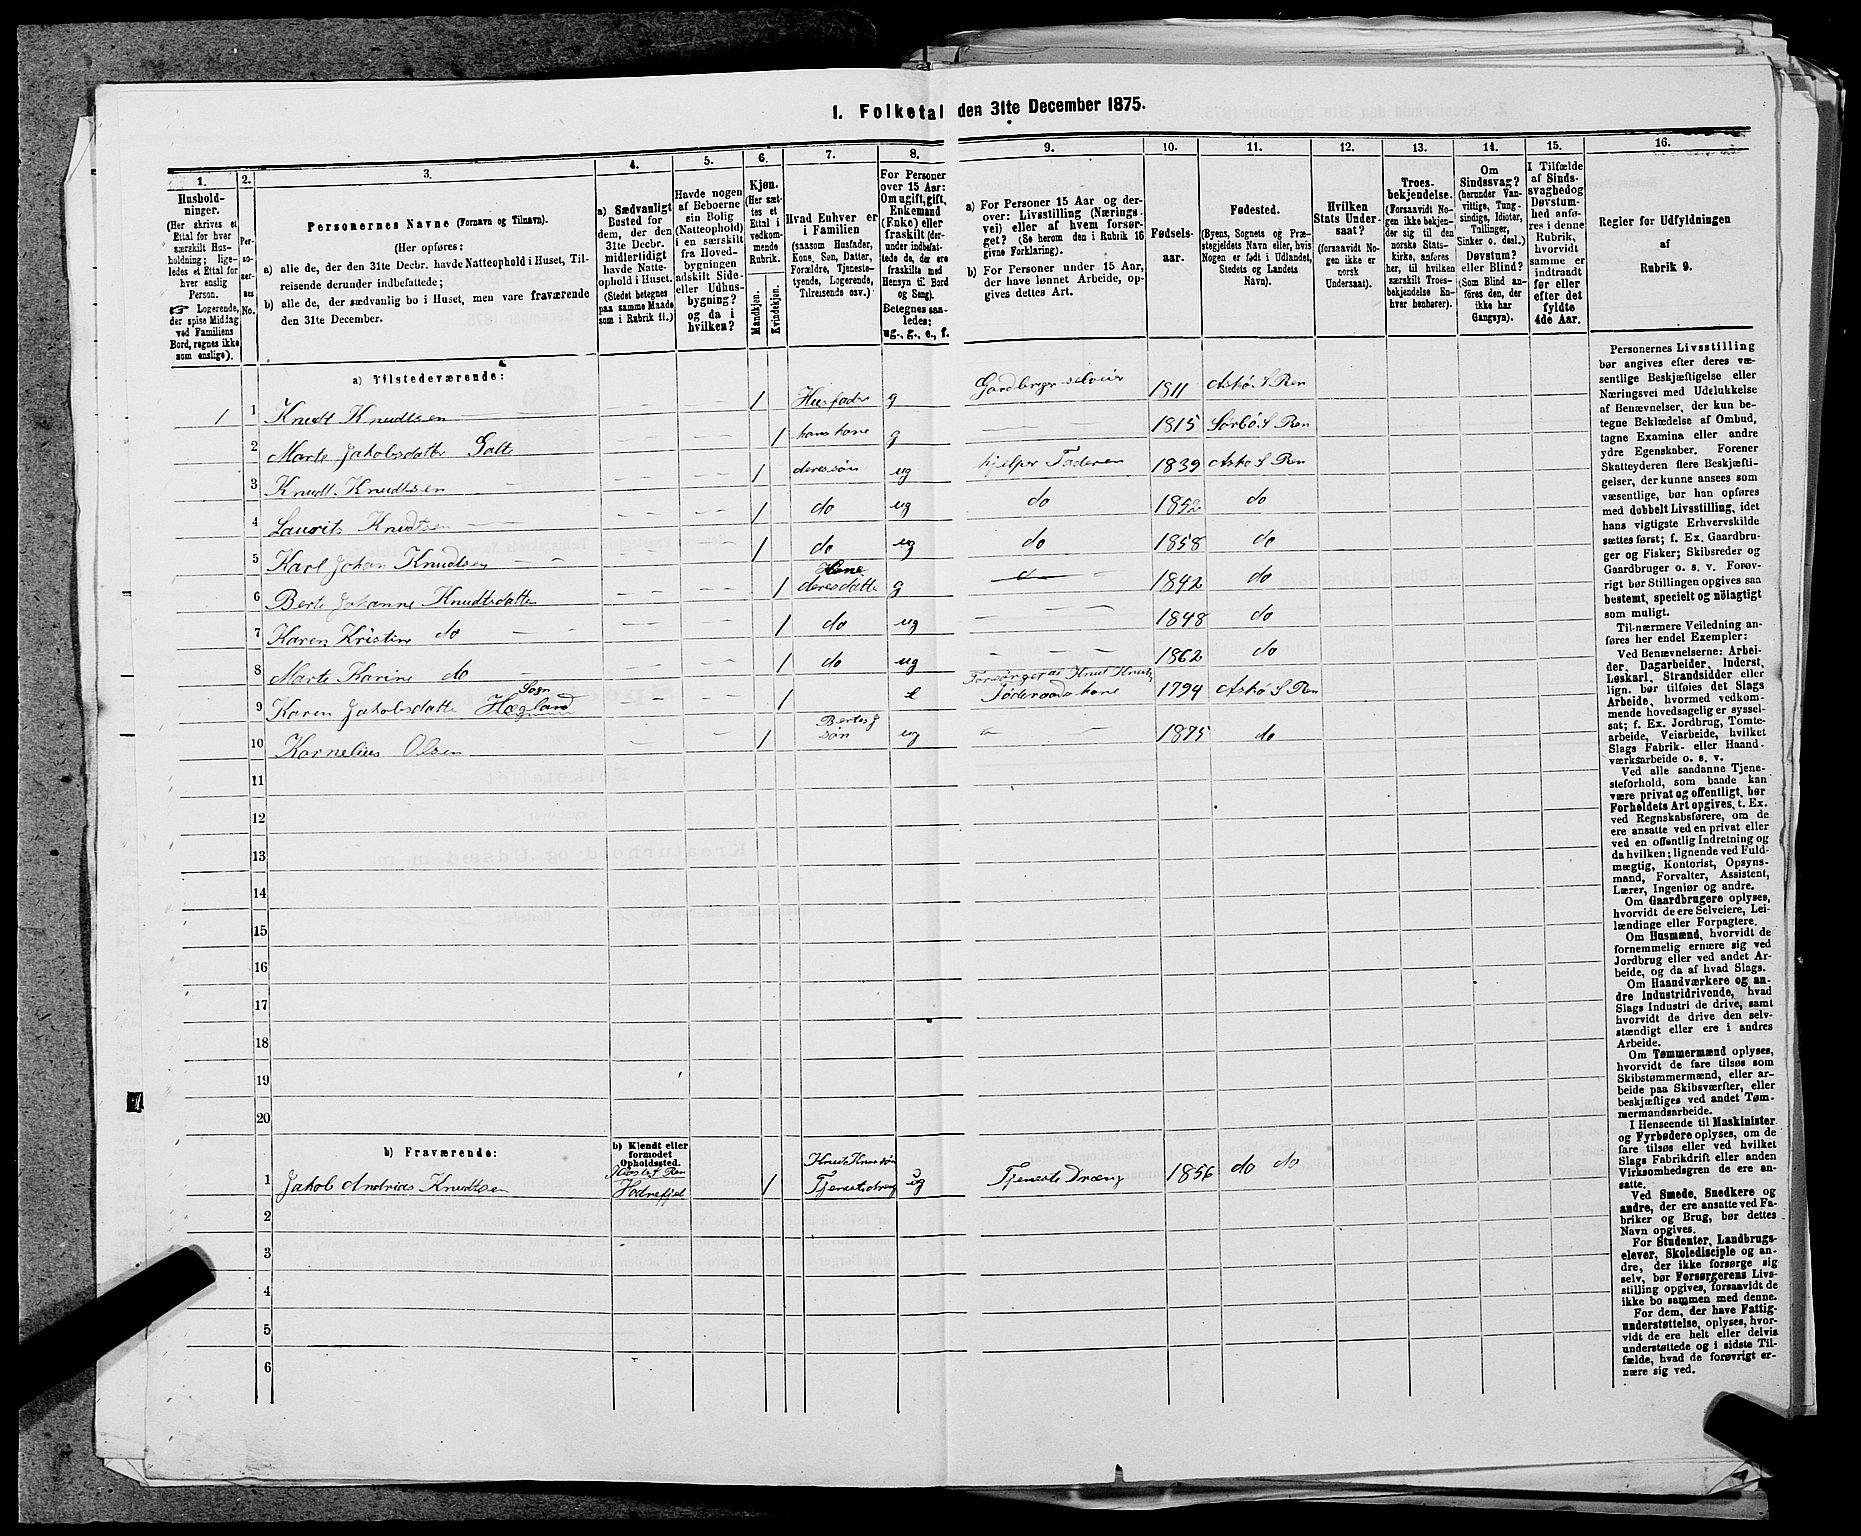 1. Folketal den 31te December 1875.
1. 2. 3. 4. 5. 6. 7. 8. 9. 10. 11. 12. 13. 14. 15. 16.
Hushold-
ninger.
(Her skrives et
Ettal for hver
særskilt Hus-
holdning; lige-
ledes et Ettal for
hver enslig
Person.
☞ Logerende,
der spise Middag
ved Familiens
Bord, regnes ikke
som enslige).
Per-
so-
ner-
nes
No.
Personernes Navne (Fornavn og Tilnavn).
(Her opføres:
a) alle de, der den 31te Decbr. havde Natteophold i Huset, Til-
reisende derunder indbefattede;
b) alle de, der sædvanlig bo i Huset, men vare fraværende
den 31te December.
a) Sædvanligt
Bosted for
dem, der den
31te Decbr.
midlertidigt
havde Natte-
ophold i Huset.
(Stedet betegnes
paa samme Maade
som i Rubrik 11.)
Havde nogen
af Beboerne
sin Bolig
(Natteophold)
i en særskilt
fra Hoved-
bygningen
adskilt Side-
eller Udhus-
bygning?
og da i
hvilken?
Kjøn.
(Her sæt-
tes et
Ettal i
vedkom-
mende
Rubrik.)
Mandkjøn.
Kvindekjøn.
Hvad Enhver er
i Familien
(saasom Husfader,
Kone, Søn, Datter,
Forældre, Tjeneste-
tyende, Logerende,
Tilreisende osv.)
For Personer
over 15 Aar:
Om ugift, gift,
Enkemand
(Enke) eller
fraskilt (der-
under indbefat-
tede de, der ere
fraskilte med
Hensyn til Bord
og Seng).
Betegnes saa-
ledes:
ug., g., e., f.
a) For Personer 15 Aar og der-
over: Livsstilling (Nærings-
vei) eller af hvem forsør-
get? (Se herom den i Rubrik 16
givne Forklaring).
b) For Personer under 15 Aar,
der have lønnet Arbeide, op-
gives dettes Art.
Fødsels-
aar.
Fødested.
(Byens, Sognets og Præ-
stegjeldets Navn eller, hvis
Nogen er født i Udlandet,
Stedets og Landets
Navn).
Hvilken
Stats Under-
saat?
(forsaavidt No-
gen ikke er
norsk
Undersaat).
Troes-
bekjendelse.
(Forsaavidt No-
gen ikke bekjen-
der sig til den
norske Stats-
kirke, anføres
her, til hvilken
særskilt Troes-
bekjendelse En-
hver henhører).
Om
Sindssvag?
(herunder Van-
vittige, Tung-
sindige, Idioter,
Tullinger,
Sinker o. desl.)
Døvstum?
eller Blind?
(Som Blind an-
føres den, der
ikke har
Gangsyn).
I Tilfælde
af Sinds-
svaghed og
Døvstum-
hed anfø-
res i denne
Rubrik,
hvorvidt
samme er
indtraadt
før eller
efter det
fyldte
4de Aar.
Regler for Udfyldningen
af
Rubrik 9.
a) Tilstedeværende:
1 1 Knudt Knudtsen 1 Husfader g Gardbruger selveier 1811 Askø S Ren
2 Marte Jakobsdatter Galte 1 hans kone g 1815 Sørbø S Ren
3 Knudt Knudtsen 1 deres søn ug hjelper Faderen 1839 Askø S Ren
4 Laurits Knudtsen 1 do ug do 1852 do
5 Karl Johan Knudtsen 1 do ug do 1858 do
6 Berte Johanne Knudtsdatter 1 deres datter g 1842 do
7 Karen Kristine do 1 do ug 1848 do
8 Marte Karine do 1 do ug 1862 do
Sogn Forsørget af Knut Knuts
9 Karen Jakobsdatter Hægland 1 e Føderaadskone 1794 Askø S Ren
Bertes
10 Kornelius Olsen 1 søn ug 1875 do
11
12
13
14
15
16
17
18
19
20
b) Fraværende:
b) Kjendt eller
formodet
Opholdssted.
1 Jakob Andreas Knudtsen Hodnefjel 1 Knut Knutsøn Tjenestedreng ug Tjeneste Dreng 1856 do do
2
3
4
5
6
Personernes Livsstilling
bør angives efter deres væ-
sentlige Beskjæftigelse eller
Næringsvei med Udelukkelse
af Benævnelser, der kun be-
tegne Beklædelse af Ombud,
tagne Examina eller andre
ydre Egenskaber. Forener
Skatteyderen flere Beskjæfti-
gelser, der kunne ansees som
væsentlige, bør han opføres
med dobbelt Livsstilling, idet
hans vigtigste Erhvervskilde
sættes først; f. Ex. Gaardbru-
ger og Fisker; Skibsreder og
Gaardbruger o. s. v. Forøv-
rigt bør Stillingen opgives saa
bestemt, specielt og nöiagtigt
som muligt.
Til nærmere Veiledning an-
føres her endel Exempler:
Ved Benævnelserne: Arbei-
der, Dagarbeider, Inderst,
Løskarl, Strandsidder eller
lign. bør tilføies det Slags
Arbeide, hvormed vedkom-
mende hovedsagelig er syssel-
sat; f. Ex. Jordbrug, Tomte-
arbeide, Veiarbeide, hvilket
Slags Fabrik- eller Haand-
værksarbeide o. s. v.
Ved alle saadanne Tjene-
steforhold, som baade kan
være privat og offentligt, bør
Forholdets Art opgives, t. Ex.
ved Regnskabsførere, om de
ere ansatte ved en privat eller
ved en offentlig Indretning og
da hvilken; lignende ved Fuld-
mægtig, Kontorist, Opsyns-
mand, Forvalter, Assistent,
Lærer, Ingeniør og andre.
Om Gaardbrugere oplyses,
hvorvidt de ere Selveiere, Lei-
lændinge eller Forpagtere.
Om Husmænd, hvorvidt de
fornemmelig ernære sig ved
Jordbrug eller ved andet Ar-
beide, og da af hvad Slags.
Om Haandværkere og an-
dre Industridrivende, hvad
Slags Industri de drive, samt
hvorvidt de drive den selv-
stændigt eller ere i andres
Arbeide.
Om Tømmermænd oplyses,
hvorvidt de fare tilsøs som
Skibstømmermænd, eller ar-
beide paa Skibsværfter, eller
beskjæftiges ved andet Tøm-
mermandsarbeide.
I Henseende til Maskinister
og Fyrbødere oplyses, om de
fare tilsøs eller ved hvilket
Slags Fabrikdrift eller anden
Virksomhedsgren de ere an-
satte.
Ved Smede, Snedkere og
andre, der ere ansatte ved Fa-
briker og Brug, bør dettes
Navn opgives.
For Studenter, Landbrugs-
elever, Skoledisciple og an-
dre, der ikke forsørge sig
selv, bør Forsørgerens Livs-
stilling opgives, forsaavidt de
ikke bo sammen med denne.
For dem, der have Fattig-
understøttelse, oplyses, hvor-
vidt de ere helt eller delvis
understøttede og i sidste Til-
fælde, hvad de forøvrigt er-
nære sig ved.